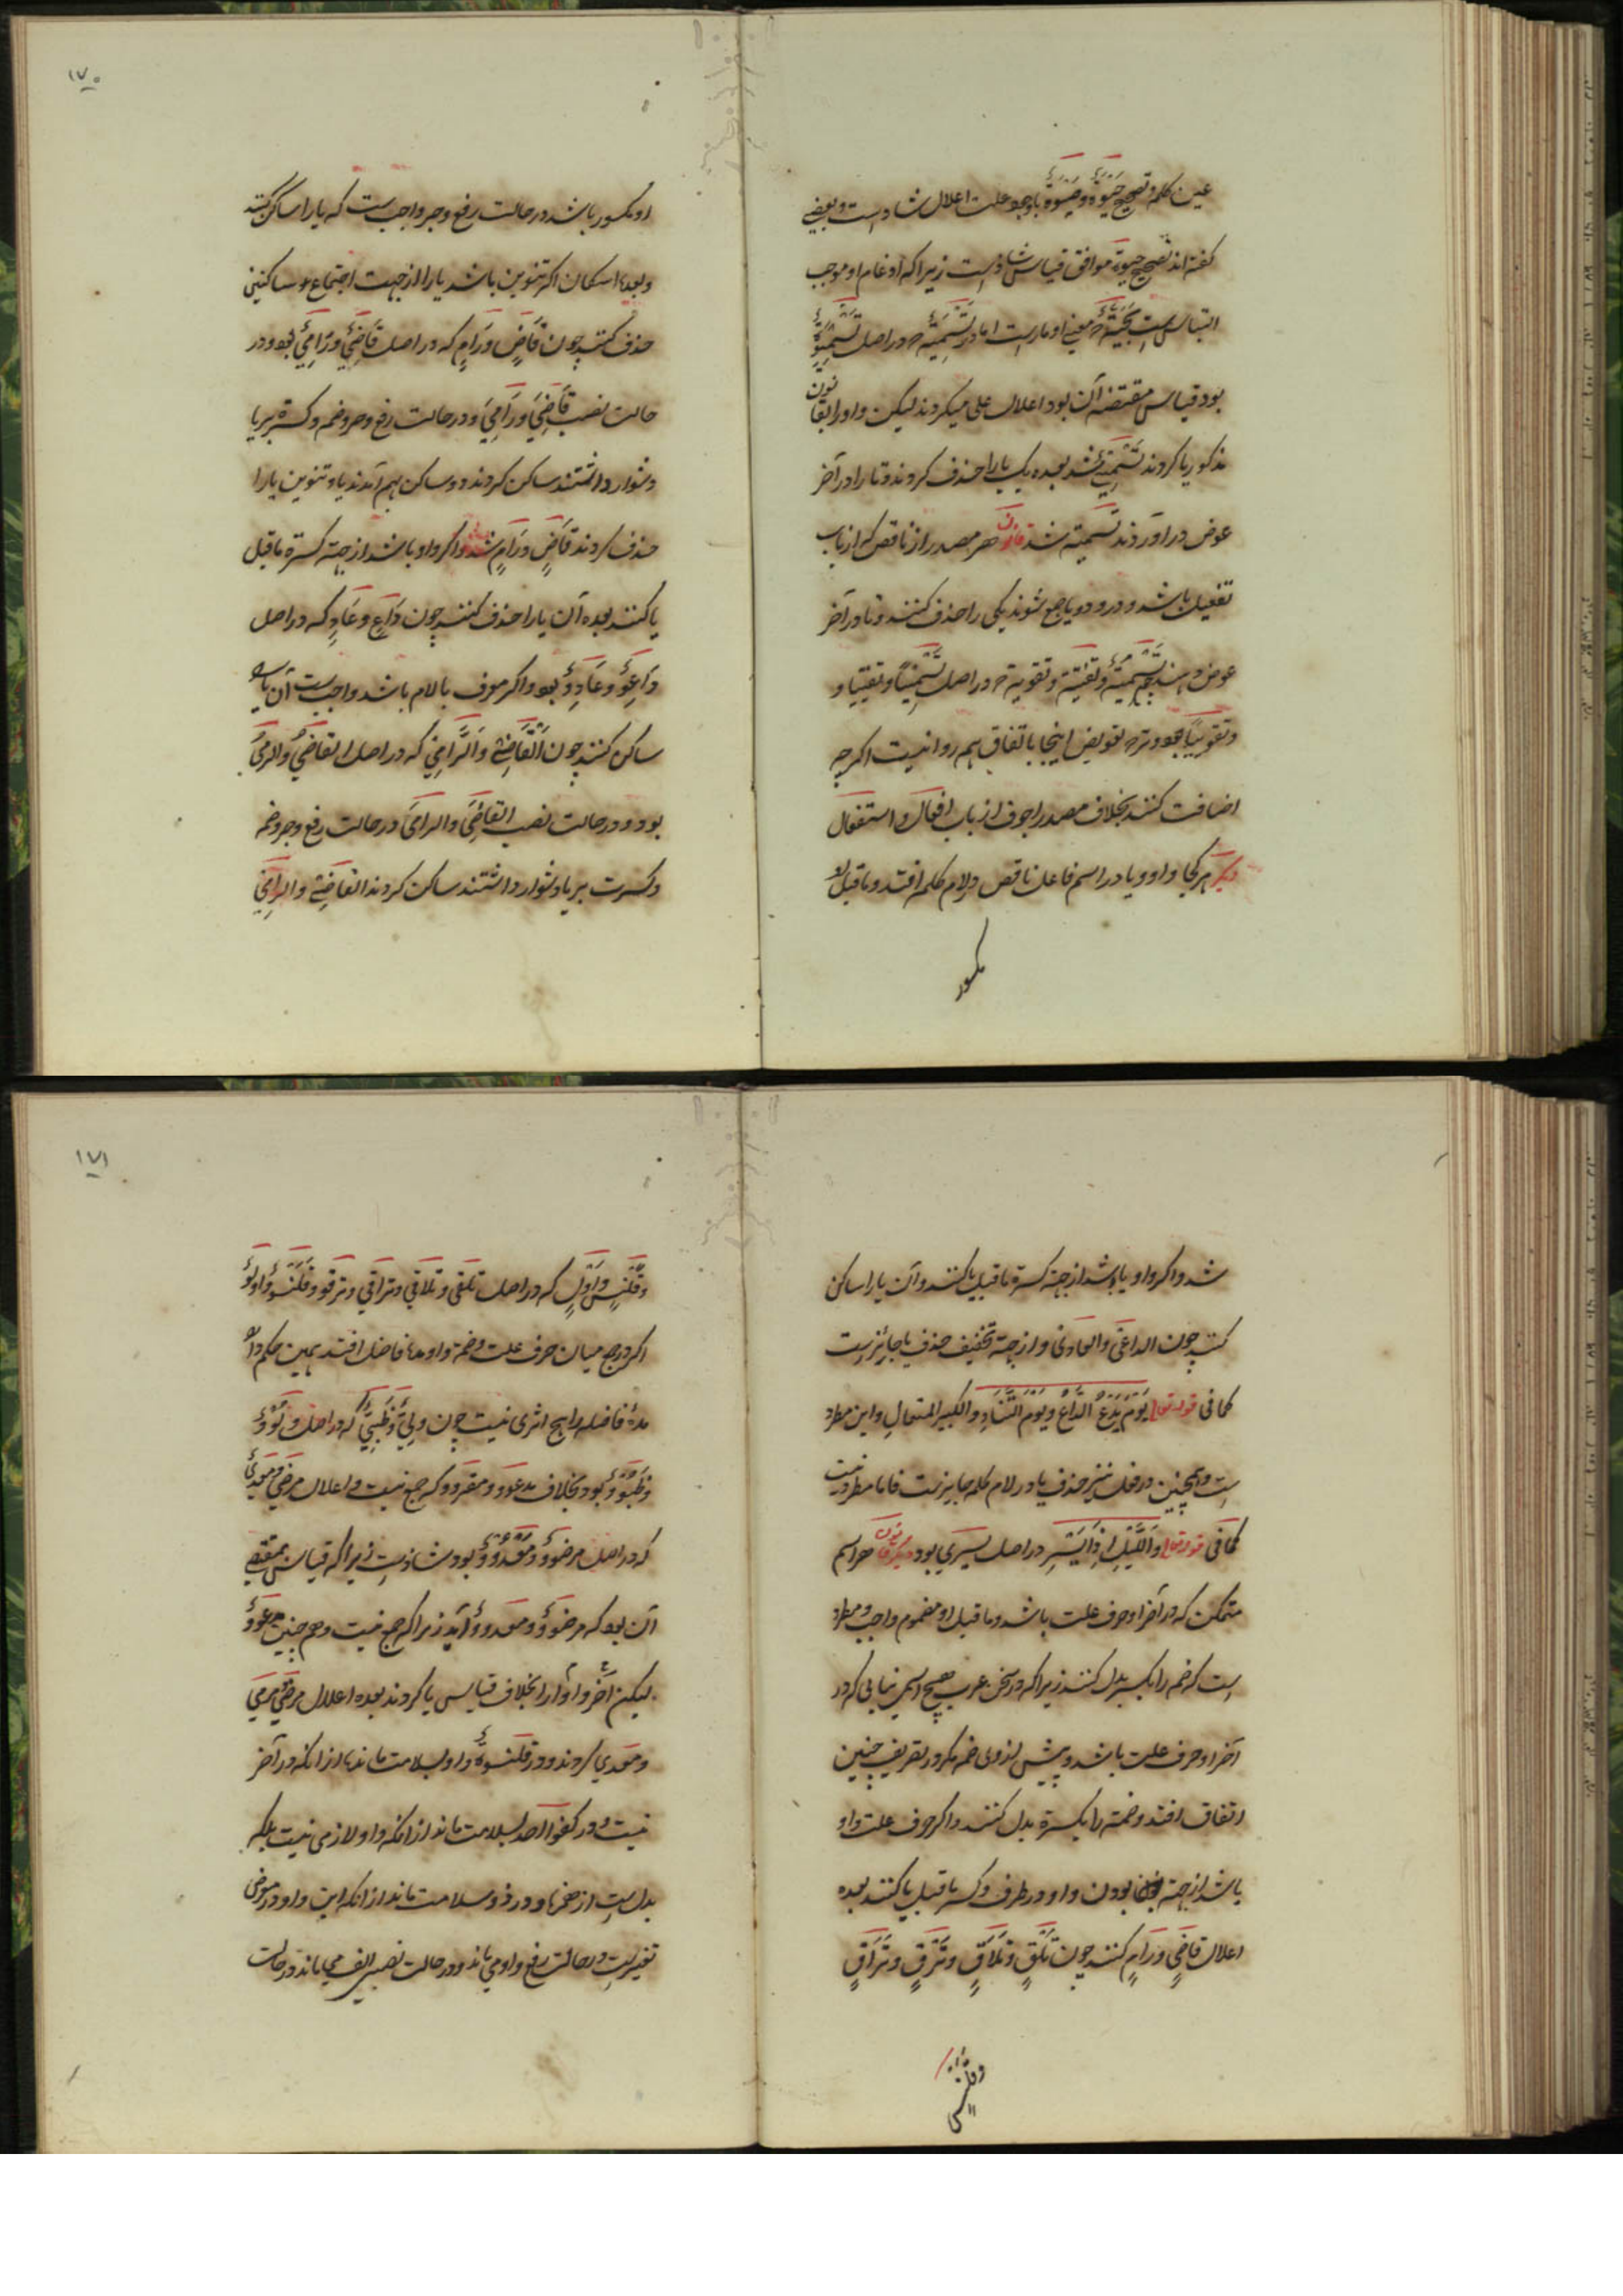 ۱۷۰
عین کلمه و تصحیح حَیَوَة و ضَیْوَة باوجود علت اعلال شاذ است و بعضی
گفته اند تصحیح حیوة موافق قیاس شاذ است زیرا که ادغام او موجب
التباس است بحَیَّة معنی او مار است اما در تَسْمِیَة در اصل تَسْمِیْوٌ
بود قیاس مقتضی آن بود اعلال علی میکردند لیکن واو را بقانون
مذکور یا کردند تَسْمِیْیٌ شد بعده یک یا را حذف کردند و تا را در آخر
عوض در آوردند تَسمیة شد قانون هر مصدر از ناقص که از باب
تفعیل باشد و در و دو یا جمع شوند یکی را حذف کنند و تا در آخر
عوض دهند چون تَسْمِیَةٌ و تقنیة و تقویة در اصل تَسْمِیْیًا و تقنییا و
و تقوییًا بود و ترک تعویض اینجا باتفاق هم روا نیست اکرچه
اضافت کنند بخلاف مصدر اجوف از باب افعال و استفعال
دیگر هر کجا واو و یا در اسم فاعل ناقص در لام کلمه افتد و ماقبل او
مکسور
او مکسور باشد در حالت رفع و جر واجب ست که یا را ساکن کنند
و بعد اسکان اکر تنوین باشد یا را از جهت اجتماع دو ساکنین
حذف کنند چون قَاضٍ و رَامٍ که در اصل قَاضِیٌ و رَامِیٌ بود و در
حالت نصب قَاضِیَ و رَامِیَ و در حالت رفع و جر و ضمه و کسره بر یا
دشوار داشتند ساکن کردند دو ساکن بهم آمدند یا و تنوین یا را
حذف کردند قَاضٍ و رَامٍ شد و اکر واو باشد از جهة کسرۀ ماقبل
یا کنند بعده آن یا را حذف کنند چون دَاعٍ و عَادٍ که در اصل
دَاعِوٌ و عَادِوٌ بود و اکر معرف بالام باشد واجب ست آن یا را
ساکن کنند چون اَلْقَاضِیْ و اَلرَّامِیْ که در اصل القاضِیُ و الرامِیُ
بود و در حالت نصب القاضِیَ و الرامِیَ در حالت رفع و جر و ضمه
و کسرت بر یا دشوار داشتند ساکن کردند القاضِیْ و الرامِیْ
۱۷۱
شد و اکر واو یا باشد از جهة کسرۀ ماقبل یا کنند و آن یا را ساکن
کنند چون الداعی و العادی و از جهة تخفیف حذف یا جائز است
کما فی قوله تعالی یَوْمَ یَدْعُ الدَّاعِ و یَوْمَ التَّنَادِ و الکبیر المتعالِ و این مطرد
ست و همچنین در فعل نیز حذف یا در لام کلمه جایز ست فاما مطرد نیست
کما فی قوله تعالی وَ اللَّیْلِ اِذَا یَسْرِ در اصل یَسْرِی بود دیگر قانون هر اسم
متمکن که در آخر او حرف علت باشد و ماقبل او مضموم واجب و مطرد
ست که ضمه را بکسر بدل کنند زیرا که در سخن عرب هیچ اسمی نیابی که در
آخر او حرف علت باشد و پیش از وی ضمه مکر در تعریف چنین
اتفاق افتد و ضمه را بکسرة بدل کنند و اکر حرف علت واو
باشد از جهة بودن واو در طرف و کسر ماقبل یا کنند بعده
اعلال قاضٍی و رَامٍ کنند چون تَلَقٍّ و تَلَاقٍ و تَرَقٍّ و تَرَاقٍ
وقلنسٍ
و قَلَنْسٍ و اَوَّلٍ که در اصل تلقی و تلاقی و تراقی و ترقو و قَلَنْسُوٌ و اولو
اکر در جمع میان حرف علت و ضمه واو مده فاضل افتد همین حکم دارد
مدۀ فاضله را هیچ اثری نیست چون دِلِیٌّ و ظُبِیٌّ که در اصل دُلُوْوٌ
و ظُبُوْوٌ بود بخلاف مدعوّ و مغزوّ که جمع نیست و اعلال مرضِیٌّ و معدِیٌّ
که در اصل مرضُوْوٌ و مَعْدُوْوٌ بود شاذ ست زیرا که قیاس مقتضی
آن بود که مرضُوٌّ و معدوٌّ آید زیرا که جمع نیست و همچنین مدعُوٌّ
لیکن آخر واو را بخلاف قیاس یا کردند بعده اعلال مرضِیٌّ مرمی
و معدِی کردند و در قلنسُوَةٌ واو بسلامت ماند از آنکه در آخر
نیست و در کفوًا احد بسلامت ماند از آنکه واو لازمی نیست بلکه
بدل ست از همزه و در ذو سلامت ماند از آنکه این واو در معرض
تغییر ست در حالت رفع واو می ماند و در حالت نصب الف می ماند در حالت